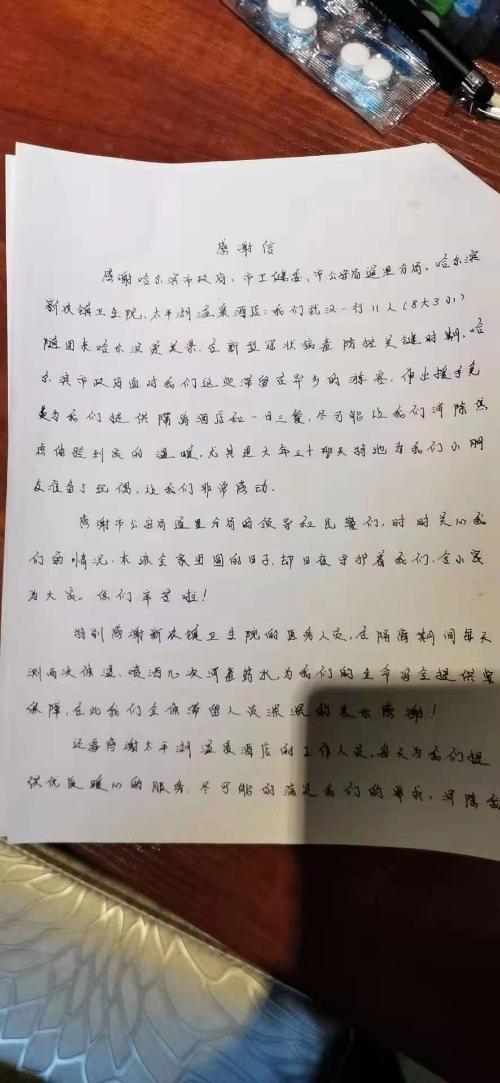 感谢信
感谢哈尔滨市政府、市卫健委、市公安局道里分局、哈尔滨
新农镇卫生院,太平湖温泉酒店:我们武汉一行11人(8大3小)
随团来哈尔滨度美景,在新型冠状病毒防控关键时期,哈
尔滨市政府面对我们这些滞留在异乡的旅客,伸出援手免
费为我们提供隔离酒店和一日三餐,尽可能让我们消除焦
虑体验到家的温暖,尤其是大年三十那天特地为我们小朋
友准备了玩偶,让我们非常感动.
感谢市公安局道里分局的领导和民警们,时时关心我
们的情况.本该全家团圆的日子,却日夜守护着我们,舍小家
为大家。你们辛苦啦!
特别感谢新农镇卫生院的医务人员,在隔离期间每天
测两次体温、喷洒几次消毒药水,为我们的生命安全提供
保障,在此我们全体滞留人员深深的表示感谢!
还要感谢太平湖温泉酒店的工作人员,每天为我们提
供优质暖心的服务,尽可能的满足我们的需求,消除我